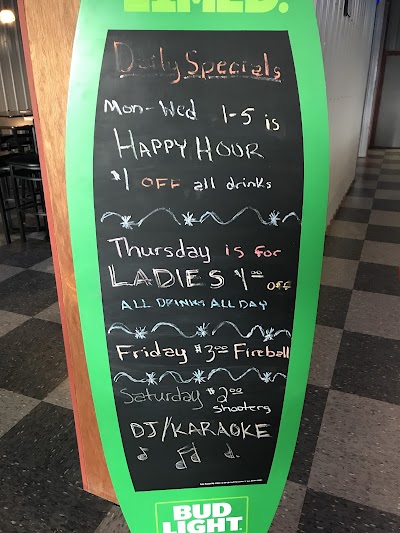 LIMED.
Daily Specials
Mon-Wed 1-5 is
HAPPY HOUR
$1 OFF all drinks
Thursday is for
LADIES $1.00 OFF
ALL DRINKS ALL DAY
Friday $3.00 Fireball
Saturday $2.00
shooters
DJ/KARAOKE
BUD
LIGHT